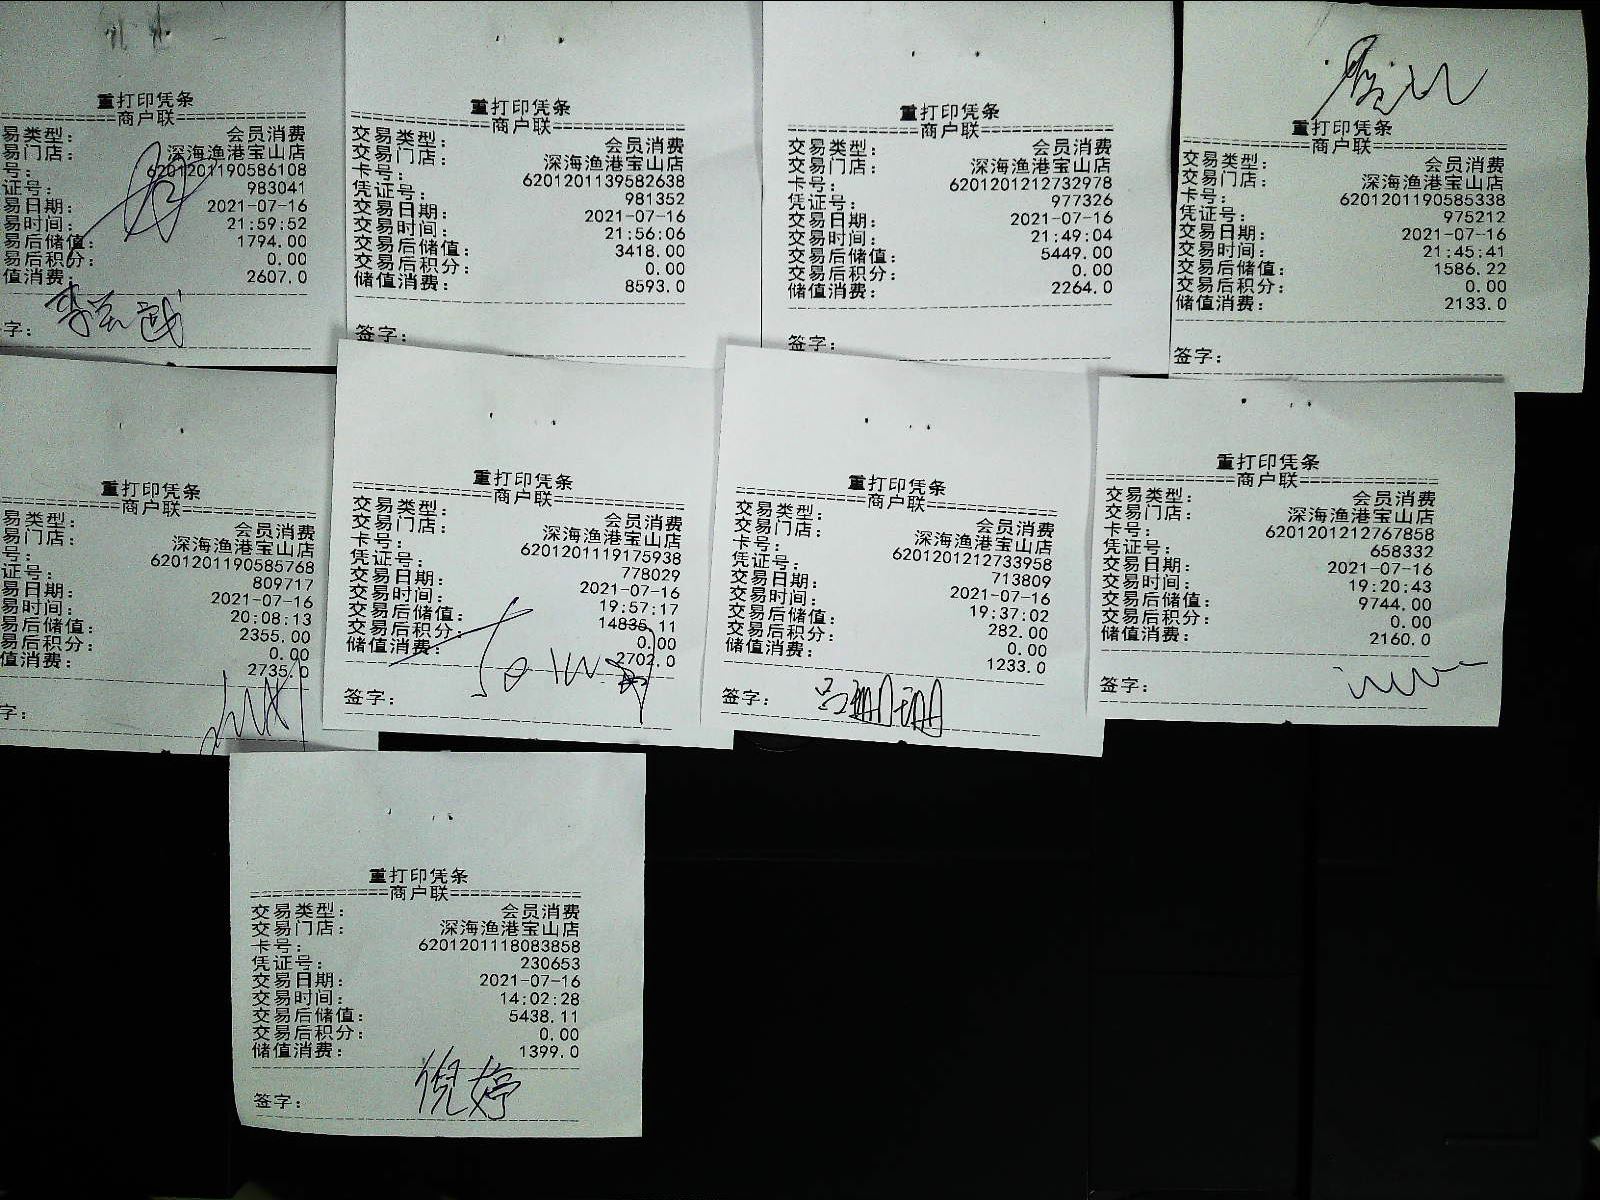 重打印凭条
商户联
易类型： 会员消费
易门店： 深海渔港宝山店
号： 6201201190586108
证号： 983041
易日期： 2021-07-16
易时间： 21:59:52
易后储值： 1794.00
易后积分： 0.00
值消费： 2607.0
字：
重打印凭条
商户联
交易类型： 会员消费
交易门店： 深海渔港宝山店
卡号： 6201201139582638
凭证号： 981352
交易日期： 2021-07-16
交易时间： 21:56:06
交易后储值： 3418.00
交易后积分： 0.00
储值消费： 8593.0
签字：
重打印凭条
商户联
交易类型： 会员消费
交易门店： 深海渔港宝山店
卡号： 6201201212732978
凭证号： 977326
交易日期： 2021-07-16
交易时间： 21:49:04
交易后储值： 5449.00
交易后积分： 0.00
储值消费： 2264.0
签字：
重打印凭条
商户联
交易类型： 会员消费
交易门店： 深海渔港宝山店
卡号： 6201201190585338
凭证号： 975212
交易日期： 2021-07-16
交易时间： 21:45:41
交易后储值： 1586.22
交易后积分： 0.00
储值消费： 2133.0
签字：
重打印凭条
商户联
易类型： 会员消费
易门店： 深海渔港宝山店
号： 6201201190585768
证号： 809717
易日期： 2021-07-16
易时间： 20:08:13
易后储值： 2355.00
易后积分： 0.00
值消费： 2735.0
字：
重打印凭条
商户联
交易类型： 会员消费
交易门店： 深海渔港宝山店
卡号： 6201201119175938
凭证号： 778029
交易日期： 2021-07-16
交易时间： 19:57:17
交易后储值： 14835.11
交易后积分： 0.00
储值消费： 2702.0
签字：
重打印凭条
商户联
交易类型： 会员消费
交易门店： 深海渔港宝山店
卡号： 6201201212733958
凭证号： 713809
交易日期： 2021-07-16
交易时间： 19:37:02
交易后储值： 282.00
交易后积分： 0.00
储值消费： 1233.0
签字：
重打印凭条
商户联
交易类型： 会员消费
交易门店： 深海渔港宝山店
卡号： 6201201212767858
凭证号： 658332
交易日期： 2021-07-16
交易时间： 19:20:43
交易后储值： 9744.00
交易后积分： 0.00
储值消费： 2160.0
签字：
重打印凭条
商户联
交易类型： 会员消费
交易门店： 深海渔港宝山店
卡号： 6201201118083858
凭证号： 230653
交易日期： 2021-07-16
交易时间： 14:02:28
交易后储值： 5438.11
交易后积分： 0.00
储值消费： 1399.0
签字： 倪婷